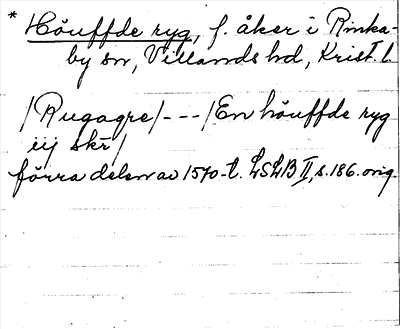 * Höuffde ryg, f. åker i Rinka-
by sn, Villands hd, Krist. l.
/Rugagre/ - - - /En höuffde ryg
iij skr/
förra delen av 1570-t. LSLB II, s. 186. orig.